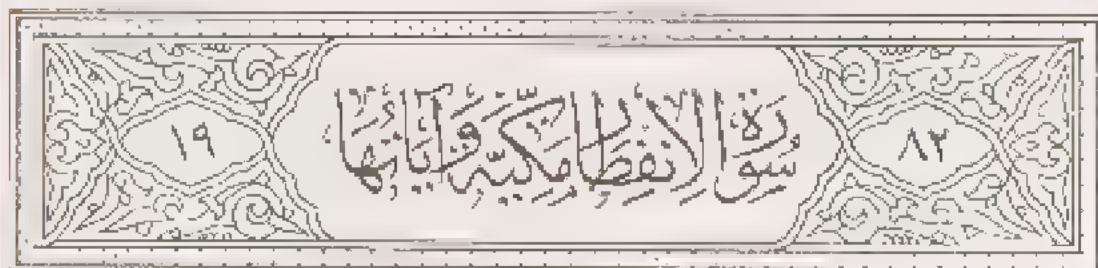 ٨٢ سُورَةُ الانفِطَارِ مَكِّيَّةٌ وَآيَاتُهَا ١٩